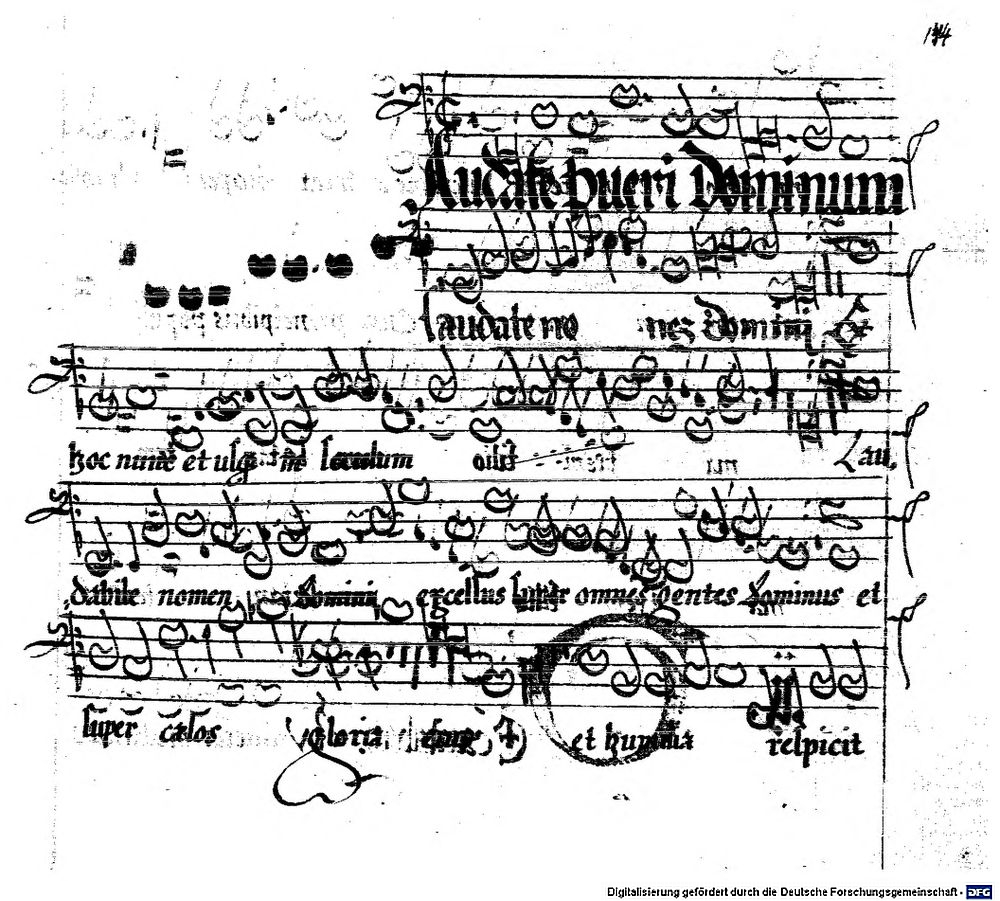 Laudate pueri Dominum
laudate no nes Domini
hoc nunc et usq in seculum Lau,
dabile nomen Domini excelsus super omnes gentes Dominus et
super cælos gloria et humilia respicit
Digitalisierung gefördert durch die Deutsche Forschungsgemeinschaft - DFG